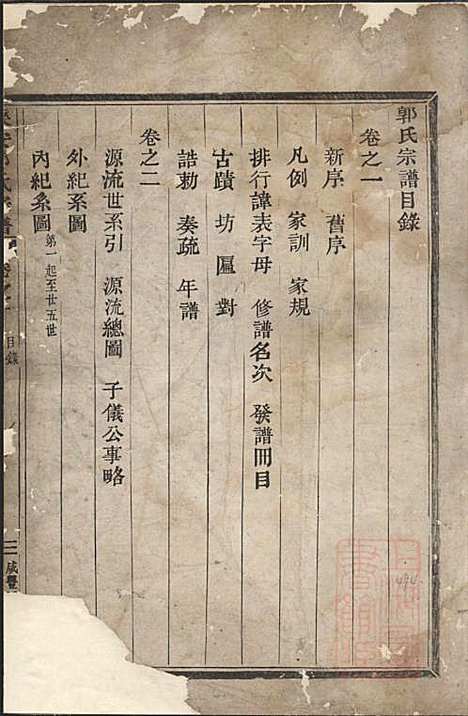 郭氏宗譜目錄
卷之一
新序 舊序
凡例 家訓 家規
排行諱表字母 修譜名次 發譜冊目
古蹟 坊 匾 對
誥勅 奏疏 年譜
卷之二
源流世系引 源流總圖 子儀公事略
外紀系圖
內紀系圖 第一起至廿五世
郭氏宗譜 卷之 目錄 咸豐
494